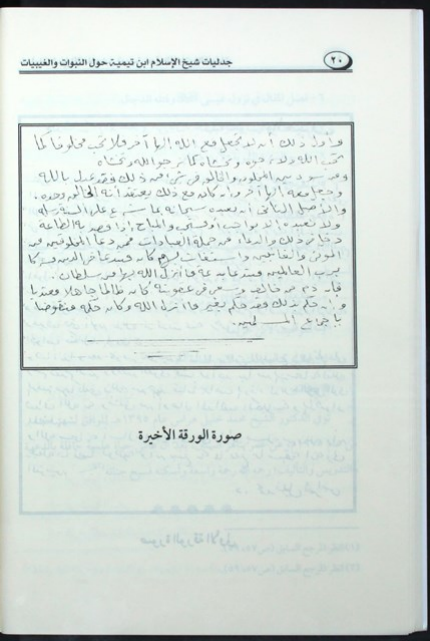 ٢٠
جدليات شيخ الإسلام ابن تيمية حول النبوات والغيبيات
وأول ذلك أن لا تجعل مع الله إلها آخر فلا تحب مخلوقا كما
تحب الله ولا ترجوه وتخشاه كما ترجو الله وتخشاه
ومن سوى بين المخلوق والخالق في شيء من ذلك فقد عدل بالله
وجعل معه إلها آخر وإن كان مع ذلك يعتقد أن الخالق وحده
والأصل الثاني أن نعبده سبحانه بما شرع على ألسنة رسله
ولا نعبده إلا بواجب أو مستحب والمباح إذا قصد به الطاعة
دخل في ذلك والدعاء من جملة العبادات فمن دعا المخلوقين من
الموتى والغائبين واستغاث بهم كان
برب العالمين
فإن ذم من خالفه وسعى في عقوبته كان ظالما جاهلا معتديا
وإن حكم بذلك فقد حكم بغير ما أنزل الله وكان حكمه منقوضا
بإجماع المسلمين
صورة الورقة الأخيرة